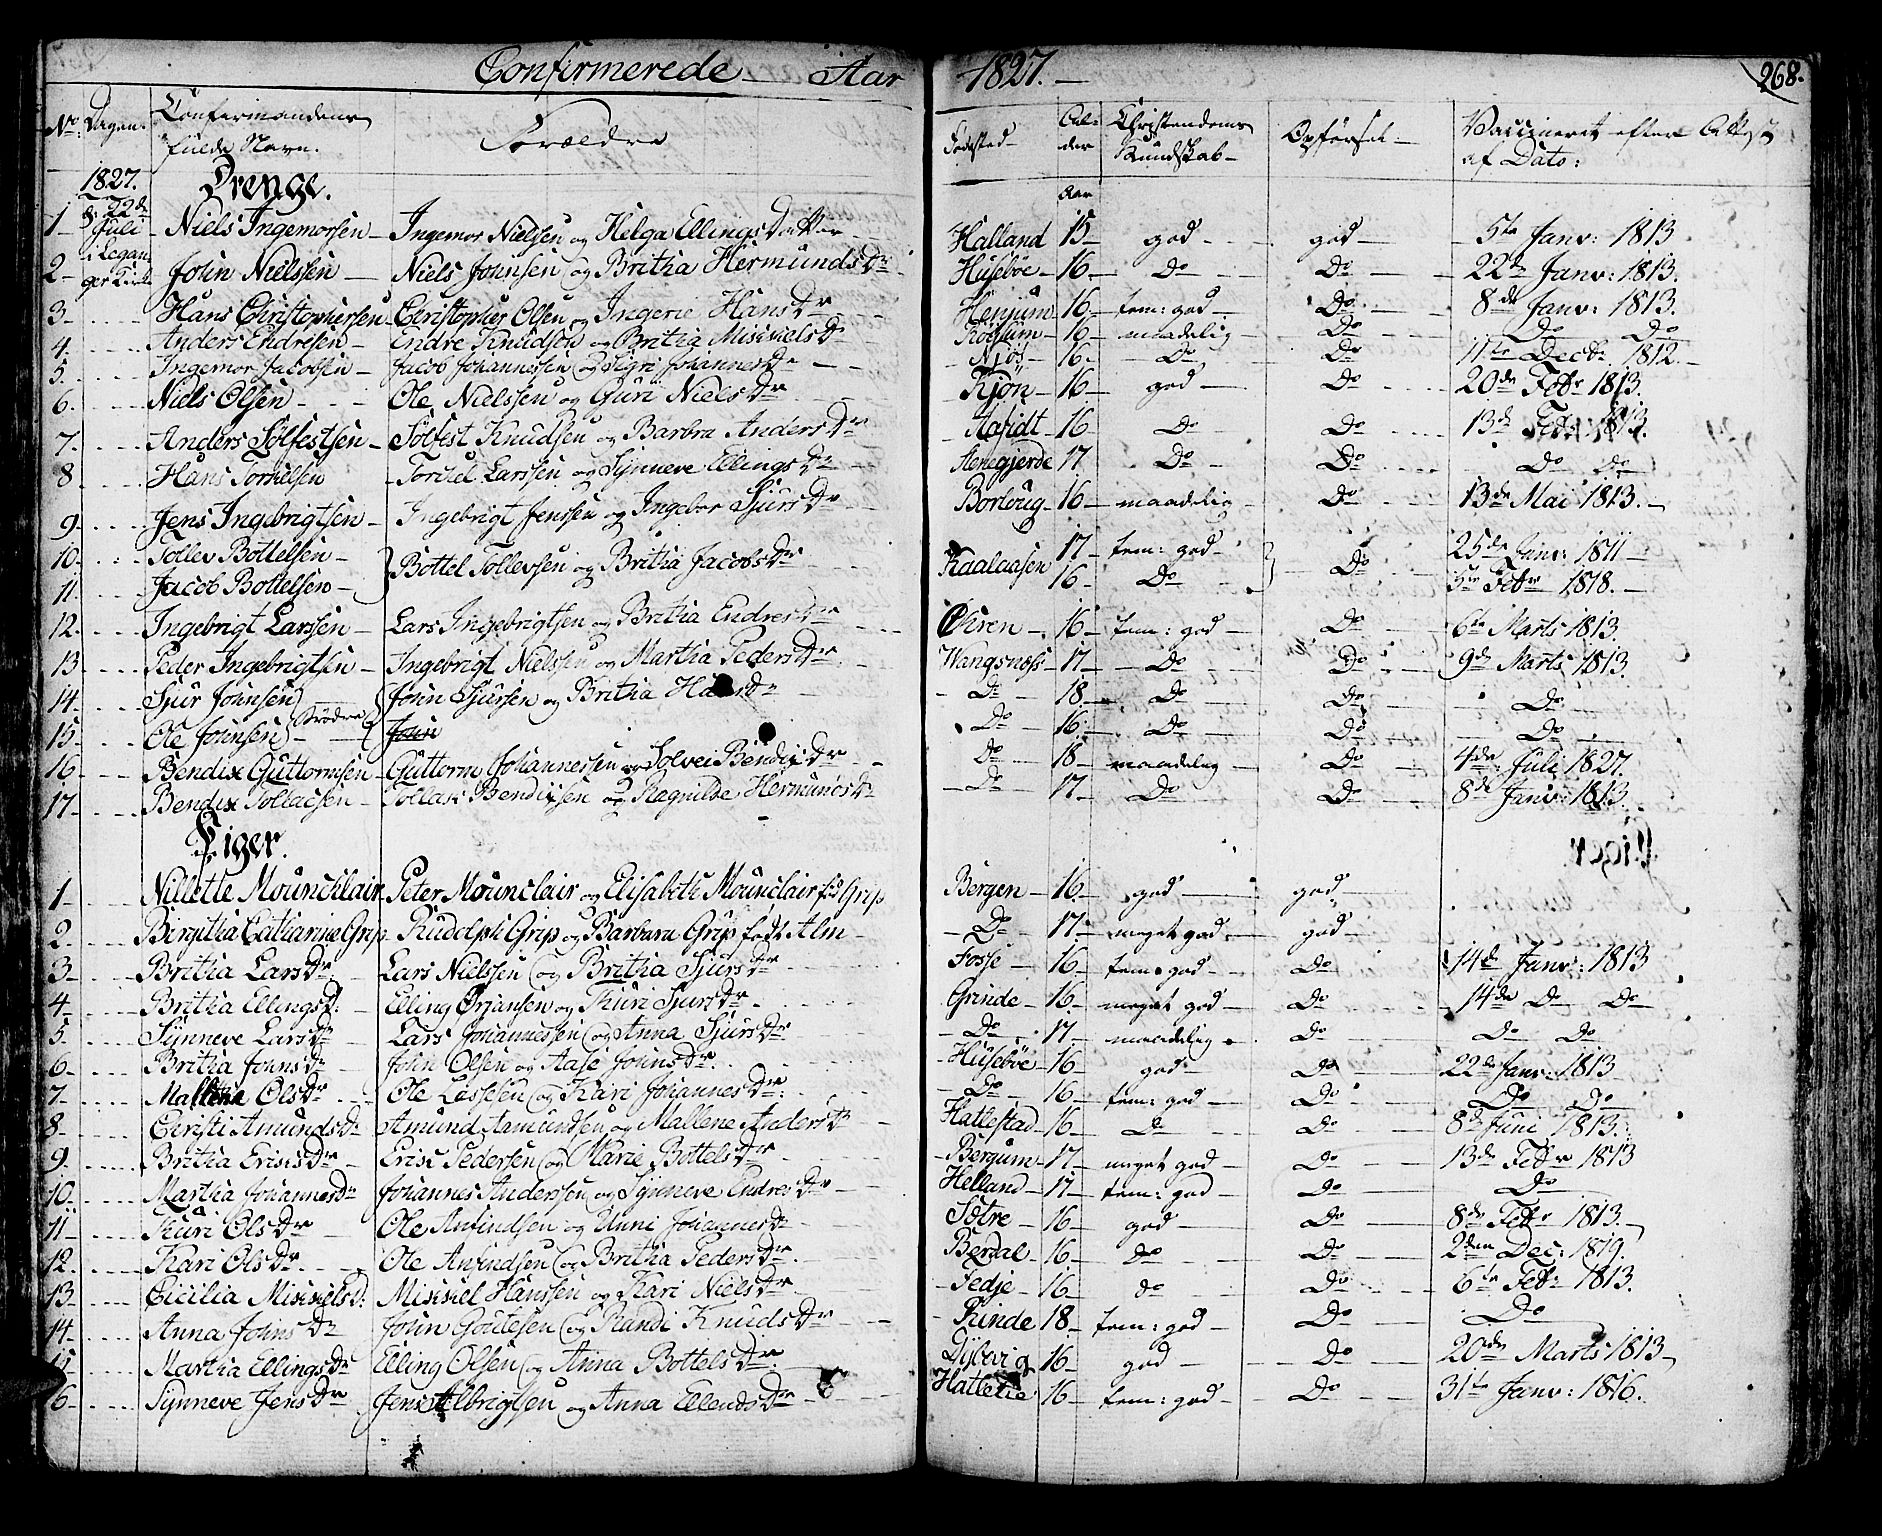 Confirmerede Aar 1827. 268.
No Dagen. Confirmandens fulde Navn. Forældre Fødested Alder Christendoms Kundskab Opførsel Vaccineret efter Attest af Dato:
1827. Drenge. Aar
d. 22de Juli i Leganger Kirke
1 Niels Ingemorsen Ingemor Nielsen og Helga Ellings Datter Halland 15 god god 5te Janv: 1813
2 John Nielssen Niels Johnsen og Brithia Hermunds Dr Husebøe 16 Do Do 22de Janv: 1813.
3 Hans Christophersen Christopher Olsen og Ingerie Hans Dr Henjum 16 tem: god Do 8de Janv: 1813.
4. Anders Endresen Endre Knudsen og Brithia Mikkels Dr 16 maadelig Do Do Do
5. Ingemor Jacobsen Jacob Johannessen og Sigri Johannes Dr Njøs 16. Do Do 11te Decbr: 1812.
6. Niels Olsen Ole Nielssen og Guri Niels Dr 16 god Do 20de Febr 1813.
7. Anders Sølfestsen Sølfest Knudsen og Barbra Anders Dr 16 Do Do 13de Febr 1813.
8 Hans Torkelsen Torckel Larssen og Synneve Ellings Dr Stenegjerde 17 Do Do Do Do
9. Jens Ingebrigtsen Ingebrigt Jenssen og Ingebor Sjurs Dr Borloug 16 maadelig Do 13de Mai 1813.
10. Tollev Bottelsen } Bottel Tollevsen og Brithia Jacobs Dr Kaalaasen 17 tem: god } Do 25de Janv: 1811
11. Jacob Bottelsen 16 Do 5te Febr 1818.
12. Ingebrigt Larssen Lars Ingebrigtsen og Brithia Endres Dr Øhren 16 tem: god Do 6te Marts 1813.
13 Peder Ingebrigtsen Ingebrigt Nielssen og Martha Peders Dr Wangsnæss 17 Do Do 9de Marts 1813.
14. Sjur Johnsen } Brødre { John Sjursen og Brithia Do 18 Do Do Do
15. Ole Johnsen John Do 16 Do Do Do
16 Bendix Guttormsen Guttorm Johannessen og Solvei Bendix Dr Do 18 maadelig Do 4de Juli 1827.
17 Bendix Tollacsen Tollak Bendixsen og Ragnilde Hermunds Dr Do 17 Do Do 8de Janv: 1813.
Piger.
1 Nillette Mouncklair Peter Mounclair og Elisabeth Mounclair fød Grip Bergen 16 god god
2. Birgitha Catharine Grip Rudolph Grip og Barbara Grip født Alm Do 17 meget god god
3 Brithia Lars Dr Lars Nielssen og Brithia Sjurs Dr Fosse 16 tem: god Do 14de Janv: 1813
4 Brithia Ellings D: Elling Ørjansen og Kuri Sjurs Dr Grinde 16 meget god Do 14de Do Do
5. Synneve Lars Dr Lars Johannessen og Anna Sjurs Dr Do 17 maadelig Do Do Do
6 Brithia Johns Dr John Olsen og Aase Johns Dr. Husebøe 16 god Do 22de Janv: 1813
7 Mallene Ols Dr Ole Lassesen og Kari Johannes Dr: Do 16 tem: god Do Do Do
8 Christi Amunds Dr Amund Aamundsen og Mallene Anders Dr Hatlestad 16 Do Do 8de Juni 1813.
9. Brithia Eriks Dr Erik Pedersen og Marie Bottels Dr Bergum 17 meget god Do 13de Febr 1813
10. Martha Johannes Dr Johannes Anderssen og Synneve Endres Dr Helland 17 tem: god Do Do
11 Kuri Ols Dr Ole Anfindsen og Unni Johannes Dr Sætre 16 god Do 8de Febr 1813.
12. Kari Ols Dr. Ole Anfindsen og Brithia Peders Dr. Berdal 16. Do Do 2den Dec: 1819.
13. Cicilia Mikkels D: Mikkel Hanssen og Kari Niels Dr Fedje 16 do Do 6te Febr 1813.
14. Anna Johns Dr John Goutesen og Randi Knuds Dr Rinde 18 tem: god Do Do
Martha Ellings Dr Elling Olsen og Anna Bottels Dr: 16 god Do 20de Marts 1813
6 Synneve Jens Dr Jens Albrigtsen og Anna Ellends Dr 16 tem: god Do 31te Janv: 1816.